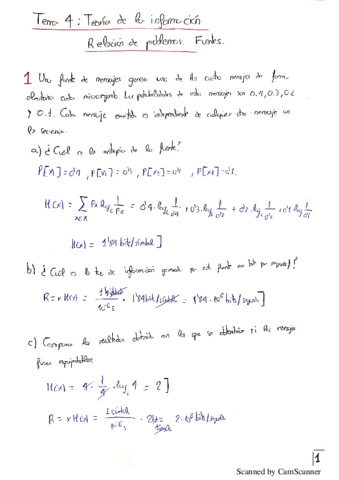 Tema 4: Teoría de la información
Relación de problemas. Fuentes.
1 Una fuente de mensajes genera uno de los cuatro mensajes de forma
aleatoria cada microsegundo. Las probabilidades de estos mensajes son 0.4, 0.3, 0.2
y 0.1. Cada mensaje emitido es independiente de cualquier otro mensaje en
la secuencia.
a) ¿Cuál es la entropía de la fuente?
H(x) = 1'84 bits/símbolo]
b) ¿Cuál es la tasa de información generada por esta fuente en bit por segundo?
R = rH(x) = 1 símbolo / 10⁻⁶ s · 1'84 bit/símbolo = 1'84 · 10⁶ bits/segundo
c) Compara los resultados obtenidos en los que se obtendrían si los mensajes
fuesen equiprobables
H(x) = 4 · 1/4 · log₂ 4 = 2]
R = rH(x) = 1 símbolo / 10⁻⁶ s · 2 bit/símbolo = 2 · 10⁶ bit/segundo
1
Scanned by CamScanner